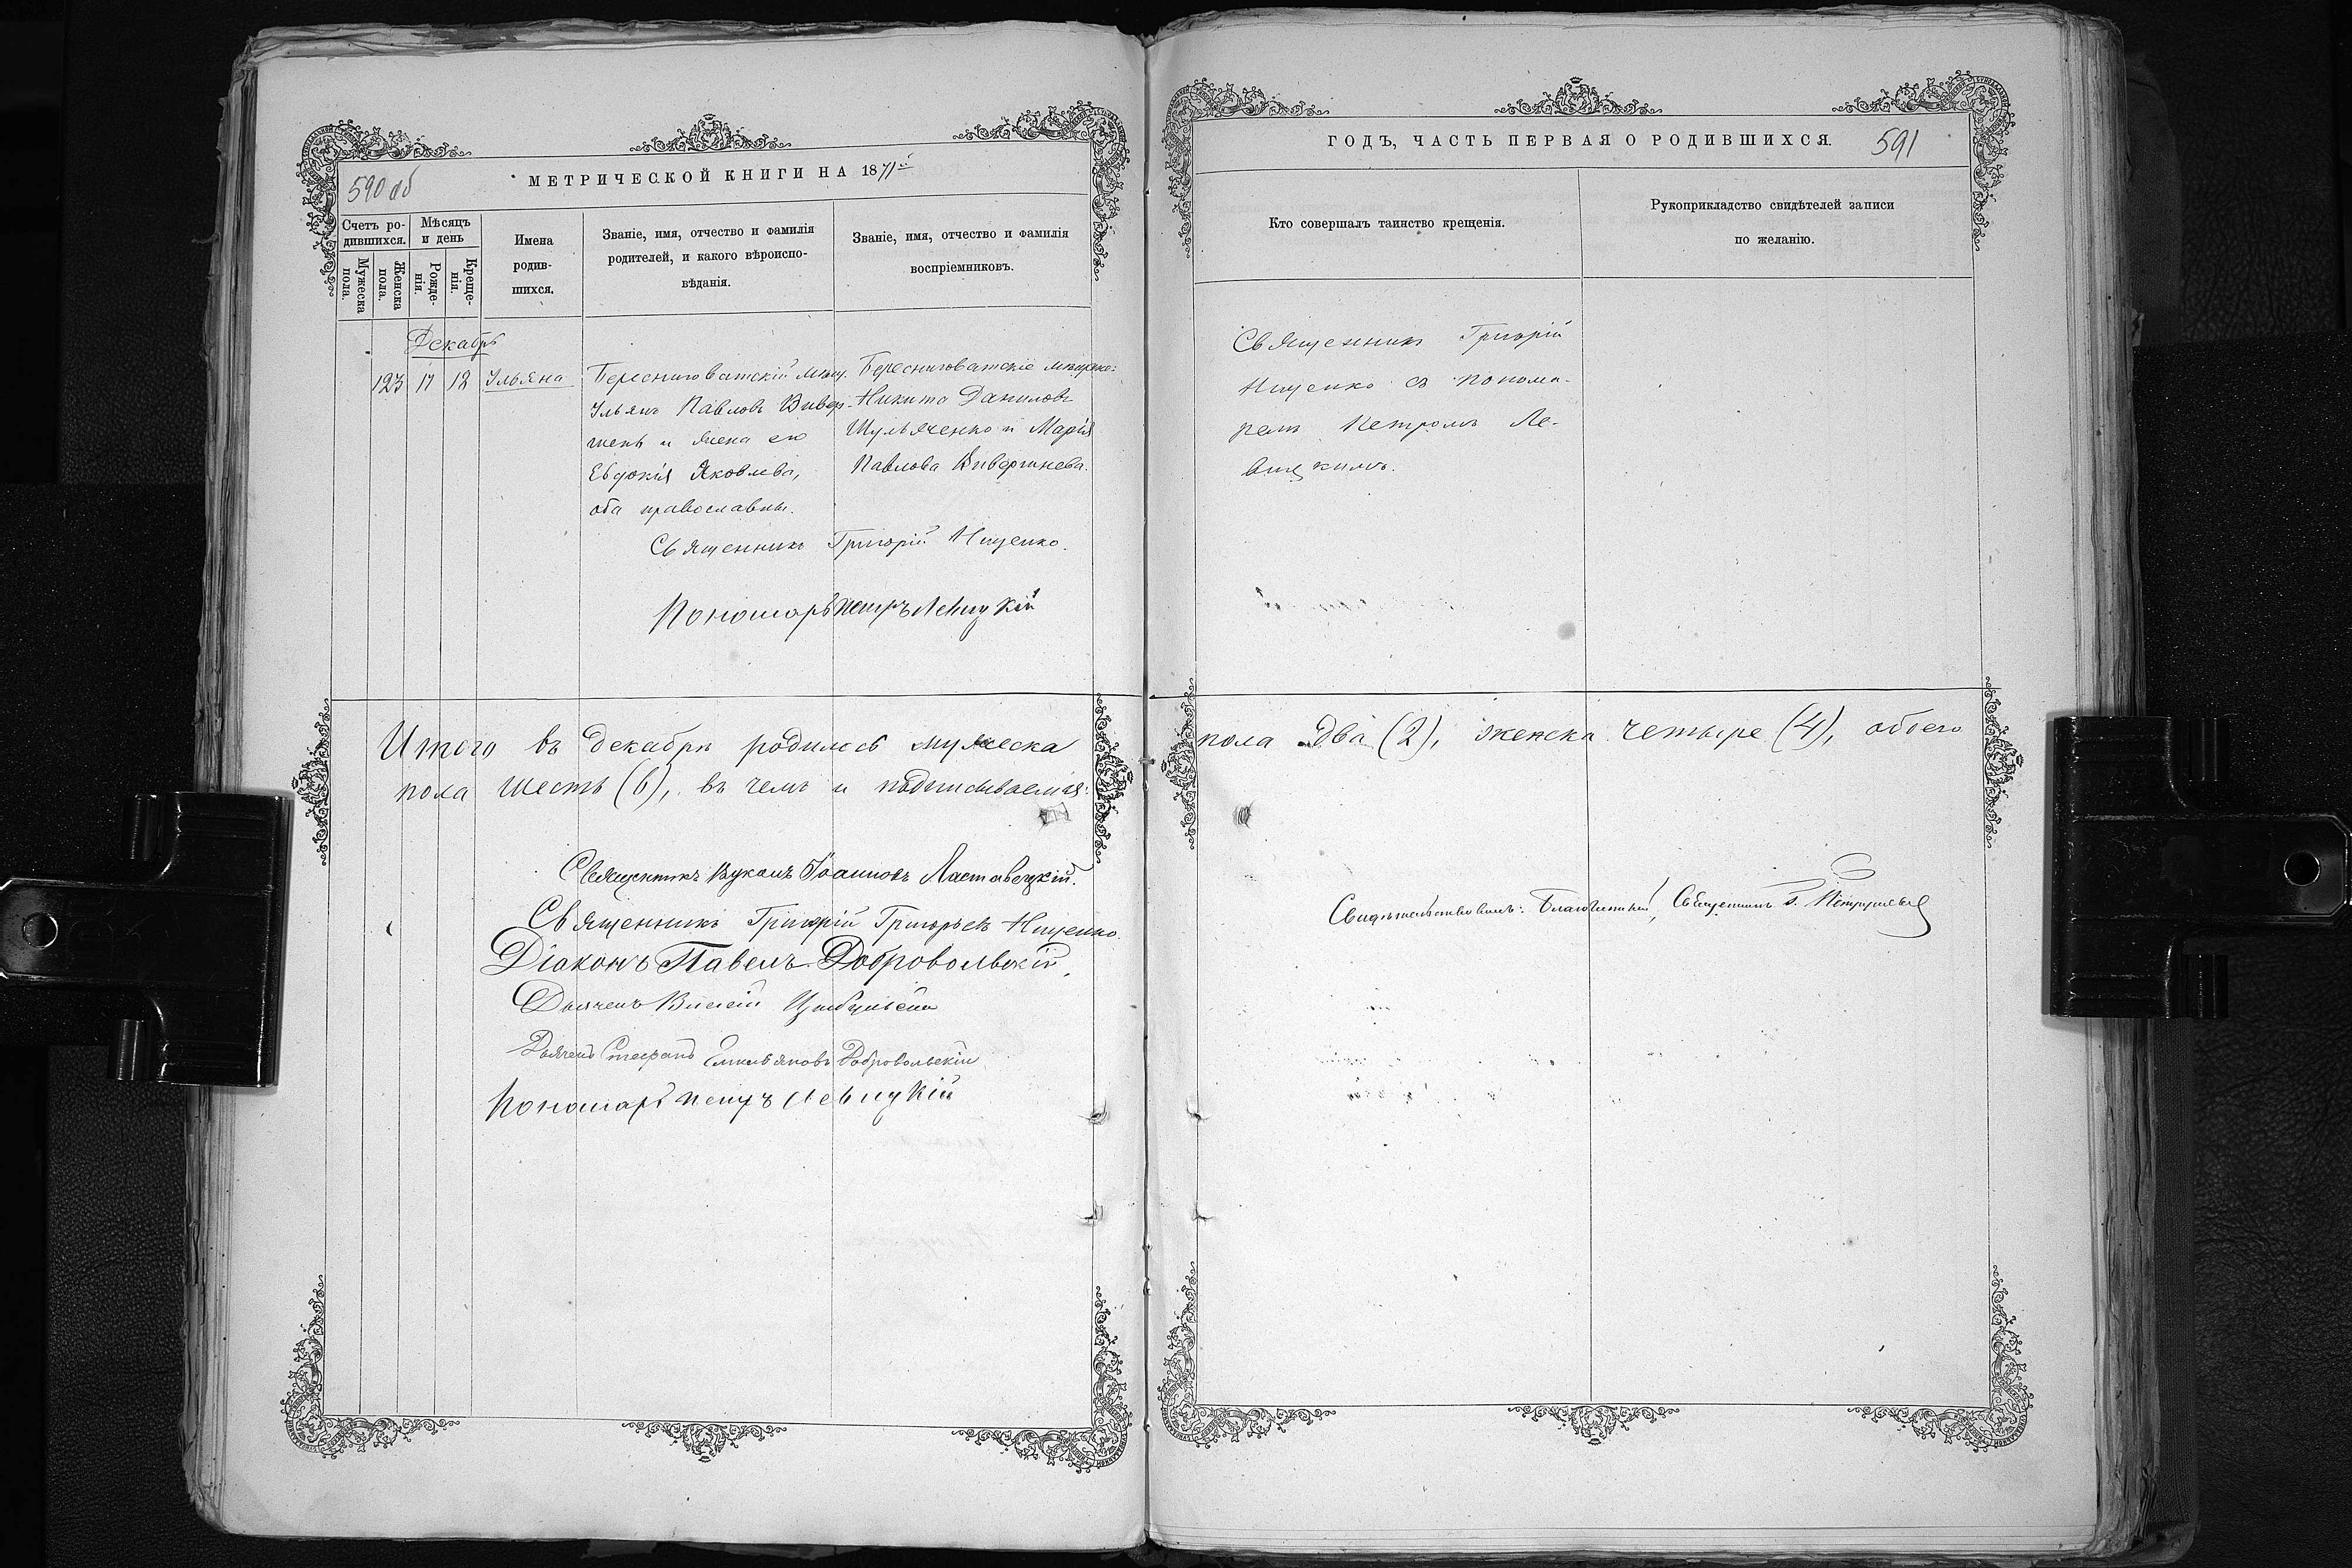 590 об
МЕТРИЧЕСКОЙ КНИГИ НА 1871й
Счетъ ро-
дившихся.
Мѣсяцъ
и день
Мужеска
пола.
Женска
пола.
Рожде-
нія.
Креще-
нія.
Имена
родив-
шихся.
Званіе, имя, отчество и фамилія
родителей, и какого вѣроиспо-
вѣданія.
Званіе, имя, отчество и фамилія
воспріемниковъ.
Декабрь
123 17 18 Ульяна
Бересниговатскій мѣщ.
Ульянъ Павловъ
и жена его
Евдокія Яковлева,
оба православны.
Бересниговатскіе
Никита Даниловъ
Шульяченко и Марія
Павлова
Священникъ Григорій Нищенко.
Пономарь Петръ Левицкій
Итого въ декабрѣ родилось мужеска
пола шесть (6), въ чемъ и подписываемся:
Священникъ Іоанновъ Ластовецкій.
Священникъ Григорій Григорьевъ Нищенко
Діаконъ Павелъ Добровольскій
Дьячекъ
Дьячекъ Стефанъ Емильяновъ Добровольскій
Пономарь Петръ Левицкій
ГОДЪ, ЧАСТЬ ПЕРВАЯ О РОДИВШИХСЯ.
591
Кто совершалъ таинство крещенія.
Рукоприкладство свидѣтелей записи
по желанію.
Священникъ Григорій
Нищенко съ понома-
ремъ Петромъ Ле-
вицкимъ.
пола два (2), женска четыре (4), обоего
Свидѣтельствовалъ: Благочинный, Священникъ